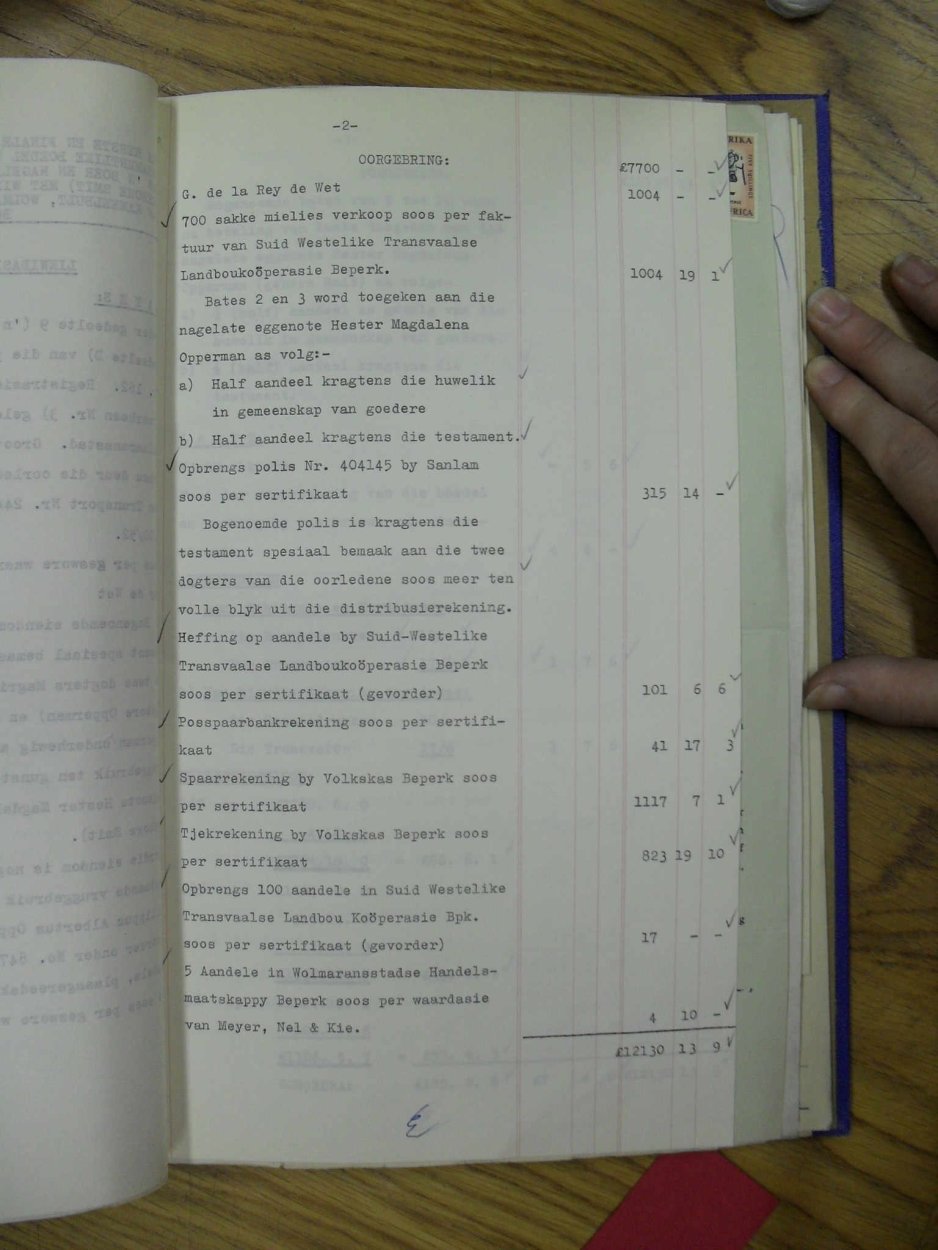 -2-
OORGEBRING: £7700 - -
G. de la Rey de Wet 1004 - -
700 sakke mielies verkoop soos per fak-
tuur van Suid Westelike Transvaalse
Landboukoöperasie Beperk. 1004 19 1
Bates 2 en 3 word toegeken aan die
nagelate eggenote Hester Magdalena
Opperman as volg:-
a) Half aandeel kragtens die huwelik
in gemeenskap van goedere
b) Half aandeel kragtens die testament.
Opbrengs polis Nr. 404145 by Sanlam
soos per sertifikaat 315 14 -
Bogenoemde polis is kragtens die
testament spesiaal bemaak aan die twee
dogters van die oorledene soos meer ten
volle blyk uit die distribusierekening.
Heffing op aandele by Suid-Westelike
Transvaalse Landboukoöperasie Beperk
soos per sertifikaat (gevorder) 101 6 6
Posspaarbankrekening soos per sertifi-
kaat 41 17 3
Spaarrekening by Volkskas Beperk soos
per sertifikaat 1117 7 1
Tjekrekening by Volkskas Beperk soos
per sertifikaat 823 19 10
Opbrengs 100 aandele in Suid Westelike
Transvaalse Landbou Koöperasie Bpk.
soos per sertifikaat (gevorder) 17 - -
5 Aandele in Wolmaransstadse Handels-
maatskappy Beperk soos per waardasie
van Meyer, Nel & Kie. 4 10 -
£12130 13 9
RIKA
RICA